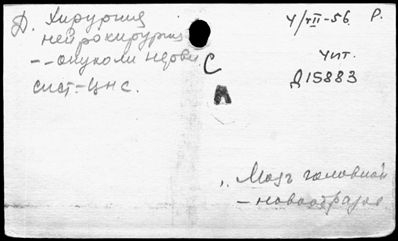 Д. Хирургия
нейрохирургия
-- опухоли нервн.
сист.-ЦНС.
С
А
4/VII-56 Р.
Чит.
Д15883
,, Мозг головной
- новообразов